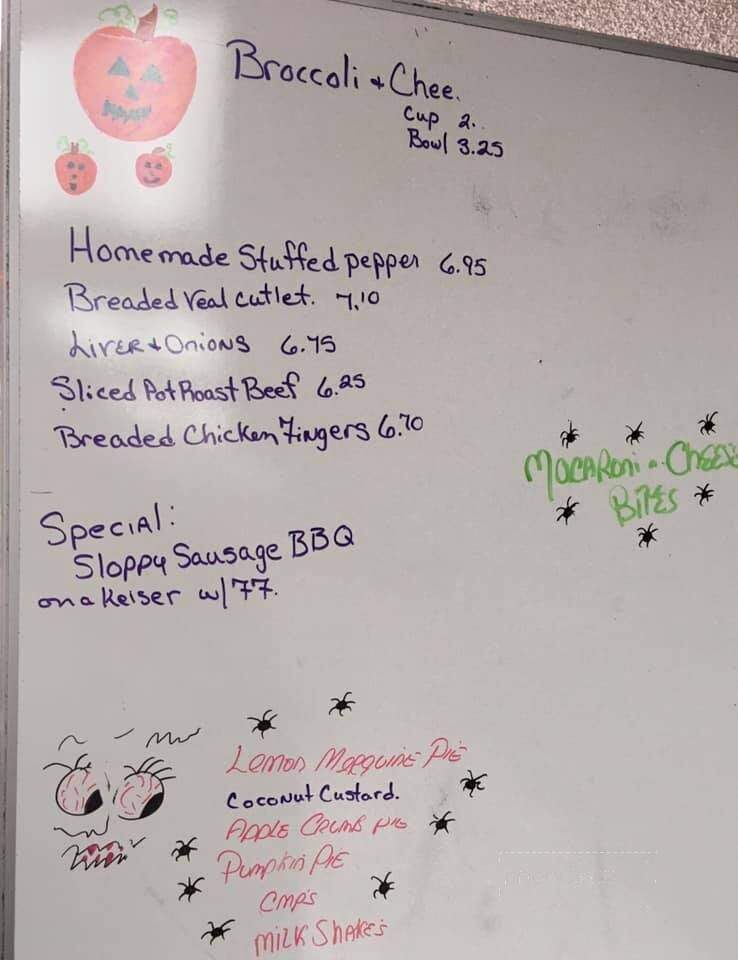 Broccoli + Chee.
Cup 2.
Bowl 3.25
Homemade Stuffed pepper 6.95
Breaded Veal cutlet. 7.10
Liver + Onions 6.75
Sliced Pot Roast Beef 6.25
Breaded Chicken Fingers 6.70
Macaroni n. Cheese
Bites
Special:
Sloppy Sausage BBQ
on a Keiser w/ FF.
Lemon Merquine Pie
Coconut Custard.
Apple Crumb Pie
Pumpkin Pie
CMP'S
Milk Shakes